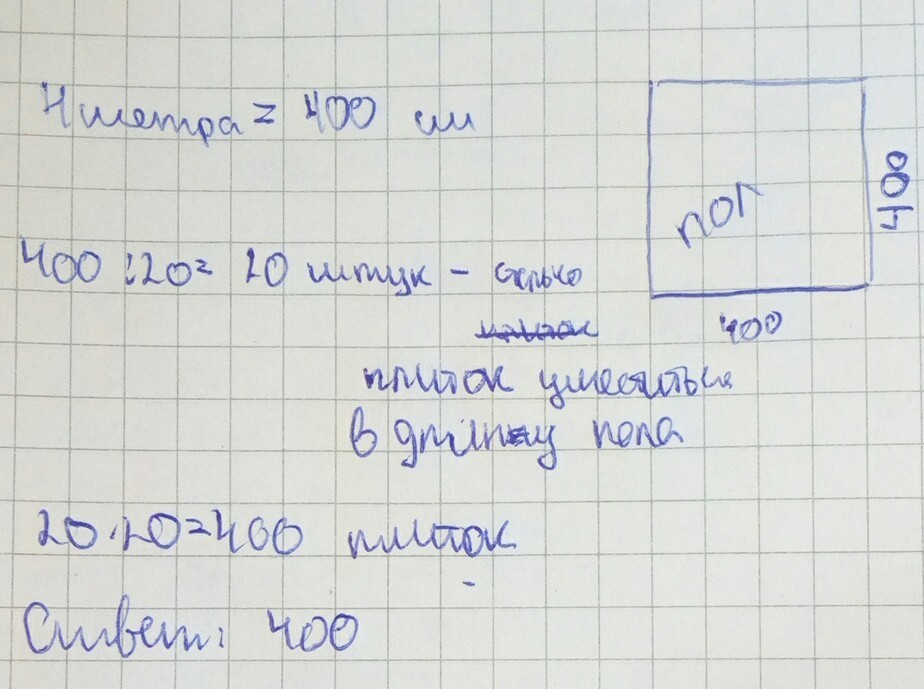 4 метра = 400 см
пол
400
400 : 20 = 20 штук – сколько
плиток уместиться
в длину пола
400
20 · 20 = 400 плиток
Ответ: 400